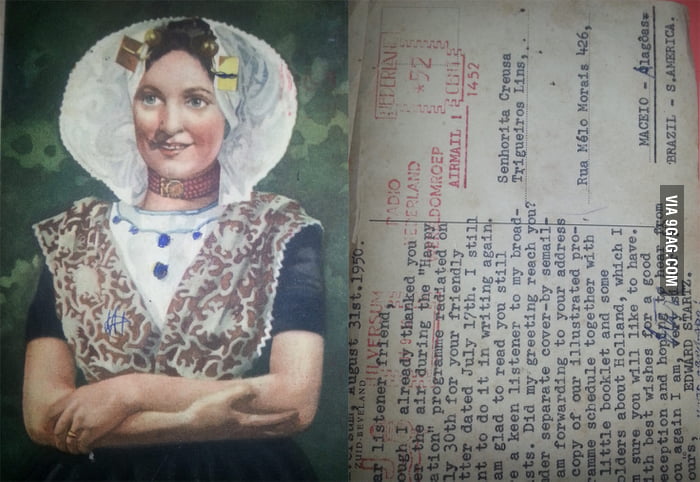 NEDERLAND
*92
CENTS
1452
AIRMAIL 1
RADIO
NEDERLAND
HILVERSUM
Senhorita Creusa
Trigueiros Lins,
Rua Mélo Morais 426,
MACEIO - Alagôas
BRAZIL - S.AMERICA.
ersum, August 31st.1950.
ZUID-BEVELAND
ar listener friend,
ough I already thanked you
er the air during the "Happy
ation" programme radiated on
ly 30th for your friendly
tter dated July 17th. I still
nt to do it in writing again.
am glad to read you still
e a keen listener to my broad-
sts. Did my greeting reach you?
der separate cover-by semail-
am forwarding to your address
copy of our illustrated pro-
ramme schedule together with
little booklet and some
olders about Holland, which I
m sure you will like to have.
th best wishes for a good
eception and hoping to from
ou again I am, very
ours, EDWARD STARTZ.
VIA 9GAG.COM